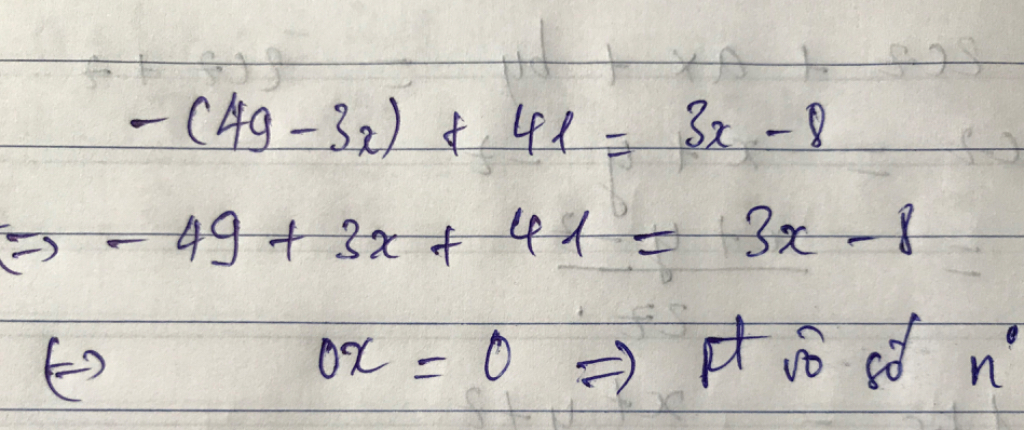 -(49-3x) + 41 = 3x - 8
⇔ -49 + 3x + 41 = 3x - 8
⇔ 0x = 0 ⇒ pt vô số n°